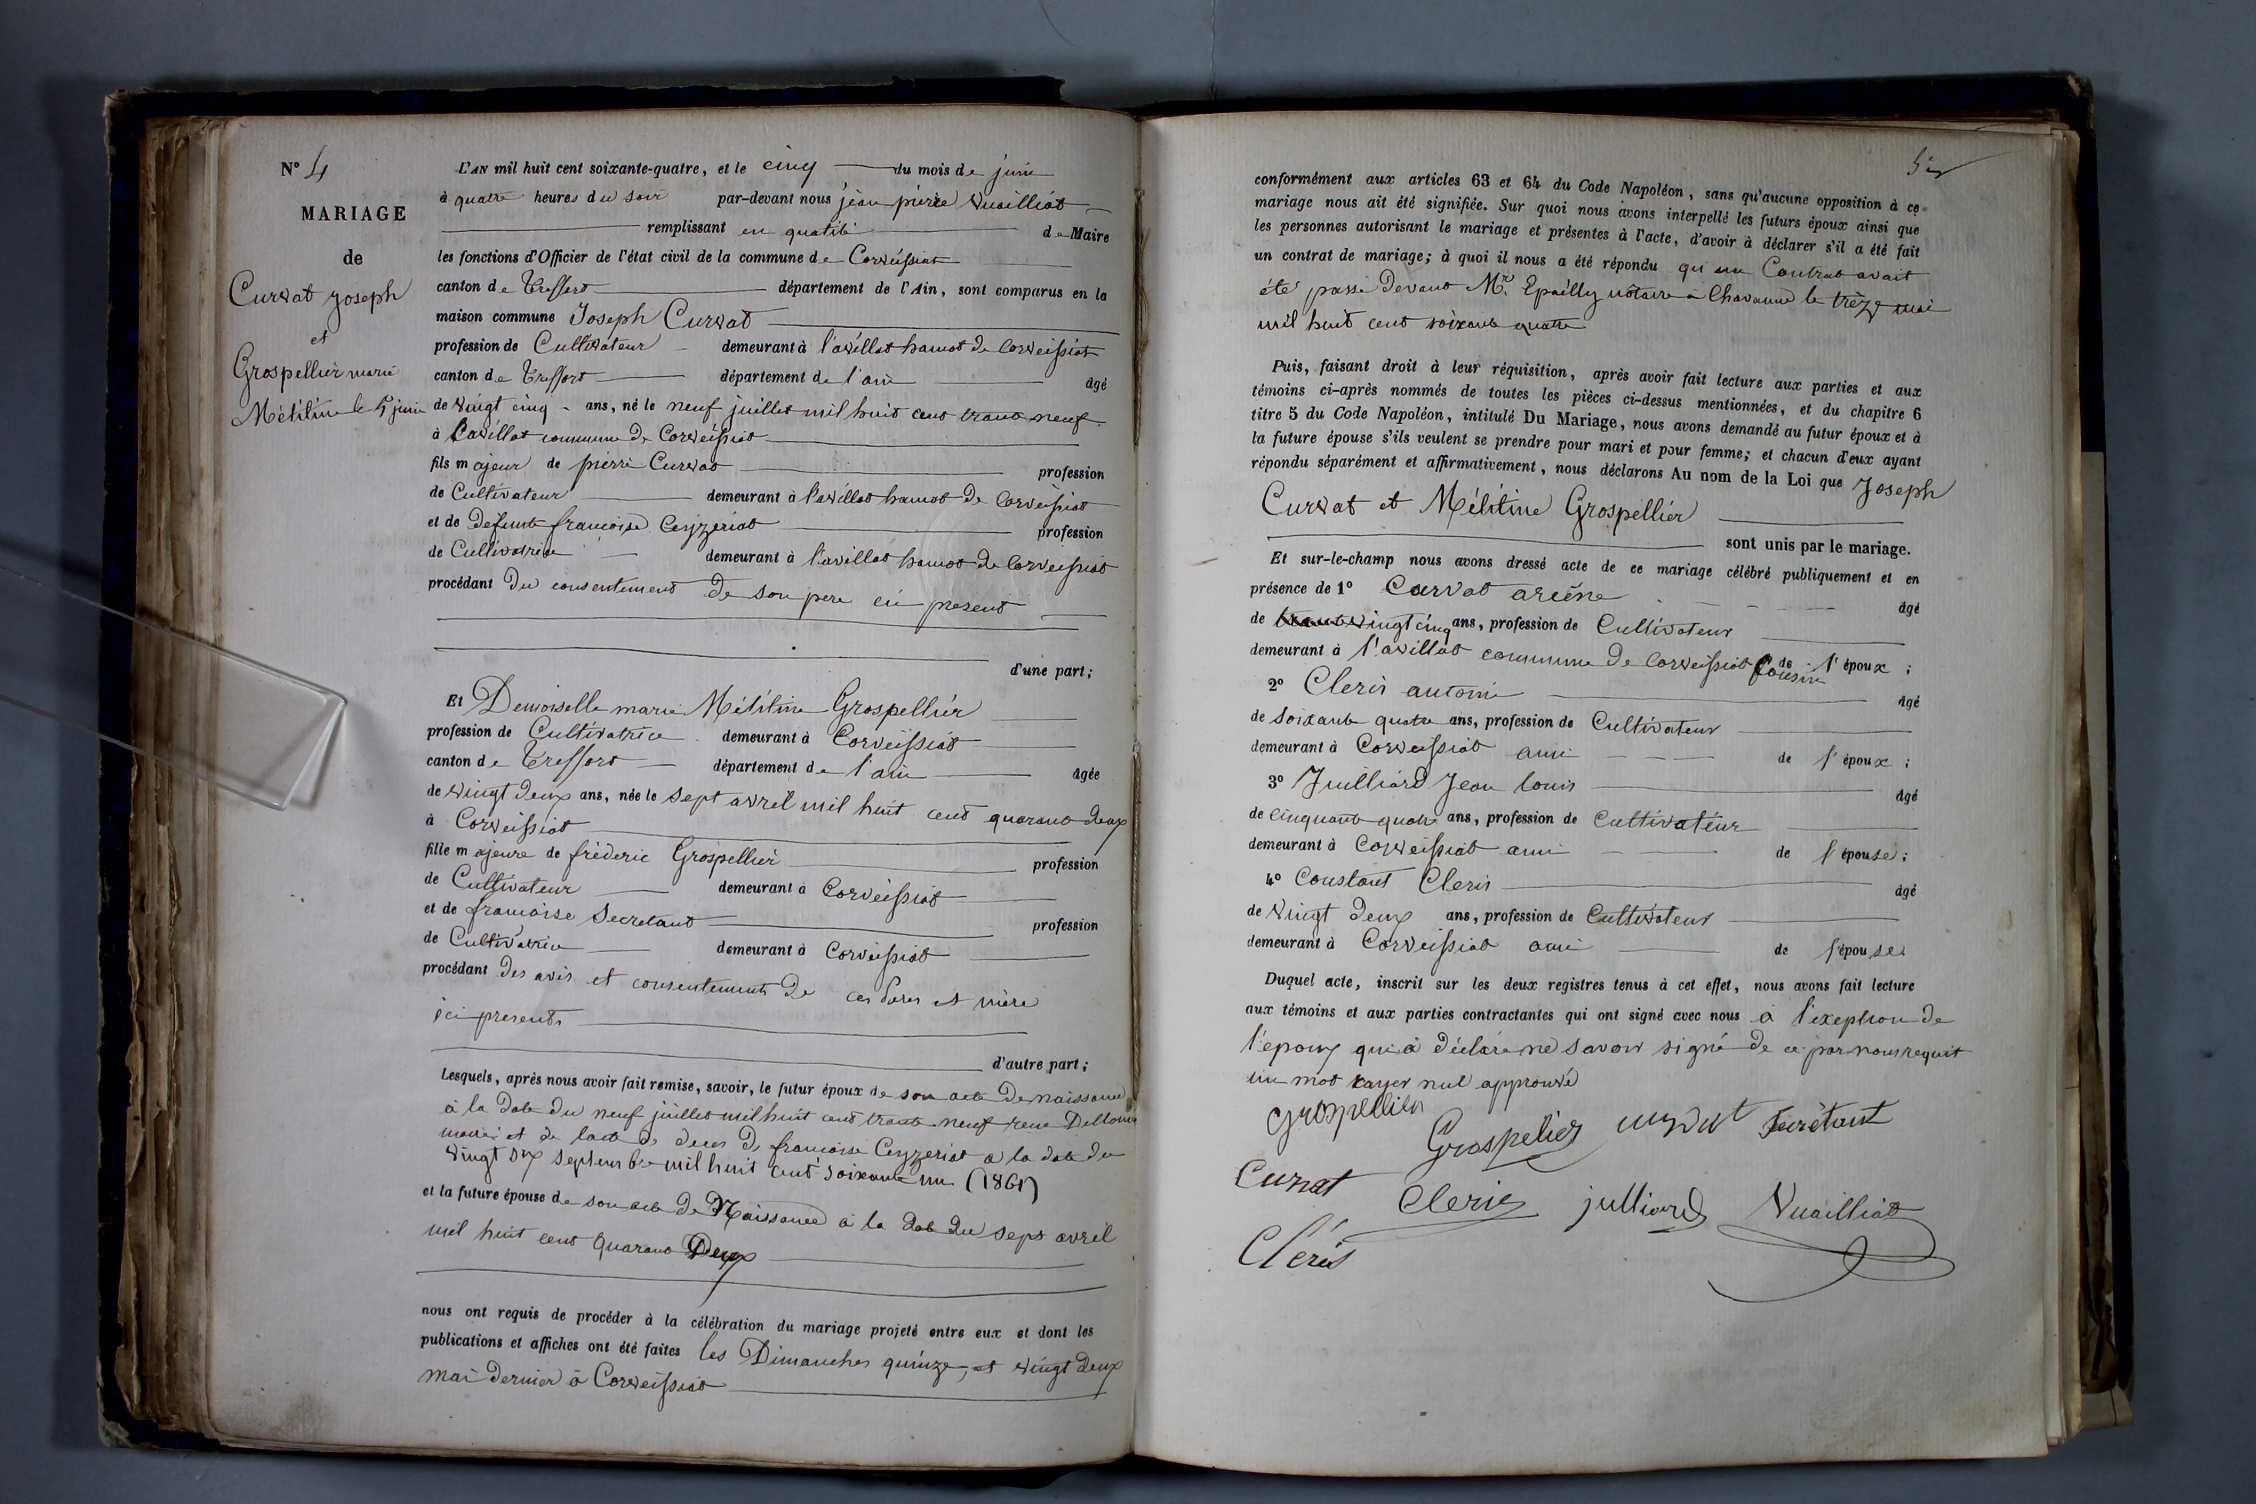 N° 4
MARIAGE
de
Curvat Joseph
et
Grospellier marie
Mélitine le 5 juin
L'AN mil huit cent soixante-quatre, et le cinq du mois de juin
à quatre heures du soir par-devant nous jean pierre Vuailliat
remplissant en qualité de Maire
les fonctions d'Officier de l'état civil de la commune de Corveissiat
canton de Treffort département de l'Ain, sont comparus en la
maison commune Joseph Curvat
profession de Cultivateur demeurant à l'avillat hamot de Corveissiat
canton de Treffort département de l'ain âgé
de vingt cinq ans, né le neuf juillet mil huit cent trante neuf
à Lavillat commune de Corveissiat
fils majeur de pierre Curvat profession
de Cultivateur demeurant à l'avillat hamot de Corveissiat
et de defunte françoise Ceyzeriat profession
de Cultivatrice demeurant à l'avillat hamot de Corveissiat
procédant Du consentement De son pere ci present
d'une part;
Et Demoiselle marie Mélitine Grospellier
profession de Cultivatrice demeurant à Corveissiat
canton de Treffort département de l'ain âgée
de vingt deux ans, née le sept avril mil huit cent quarant deux
à Corveissiat
fille majeure de fréderic Grospellier profession
de Cultivateur demeurant à Corveissiat
et de françoise Secretant profession
de Cultivatrice demeurant à Corveissiat
procédant Des avis et consentements De ces Peres et mère
ici presents
d'autre part;
Lesquels, après nous avoir fait remise, savoir, le futur époux de son acte De naissance
à la Date du neuf juillet mil huit cent trante neuf
et de lacte de deces de françoise Ceyzeriat a la date du
vingt six septembre mil huit cent soixante un (1861)
et la future épouse de son acte De Naissance à la date du sept avril
mil huit cent quarant Deux
nous ont requis de procéder à la célébration du mariage projeté entre eux et dont les
publications et affiches ont été faites les Dimanches quinze, et vingt deux
mai dernier à Corveissiat
conformément aux articles 63 et 64 du Code Napoléon, sans qu'aucune opposition à ce
mariage nous ait été signifiée. Sur quoi nous avons interpellé les futurs époux ainsi que
les personnes autorisant le mariage et présentes à l'acte, d'avoir à déclarer s'il a été fait
un contrat de mariage; à quoi il nous a été répondu qu'un Contrat avait
été passé Devant Mr. Epailly notaire à Chavanne le trèze mai
mil huit cent soixante quatre
Puis, faisant droit à leur réquisition, après avoir fait lecture aux parties et aux
témoins ci-après nommés de toutes les pièces ci-dessus mentionnées, et du chapitre 6
titre 5 du Code Napoléon, intitulé Du Mariage, nous avons demandé au futur époux et à
la future épouse s'ils veulent se prendre pour mari et pour femme; et chacun d'eux ayant
répondu séparément et affirmativement, nous déclarons Au nom de la Loi que Joseph
Curvat et Mélitine Grospellier
sont unis par le mariage.
Et sur-le-champ nous avons dressé acte de ce mariage célébré publiquement et en
présence de 1° Curvat arcéne âgé
de vingt cinq ans, profession de Cultivateur
demeurant à l'avillat commune de Corveissiat Cousin de l'époux;
2° Cleris antoine âgé
de soixante quatre ans, profession de Cultivateur
demeurant à Corveissiat ami de l'époux;
3° Juilliard Jean louis âgé
de cinquante quatre ans, profession de Cultivateur
demeurant à Corveissiat ami de l'épouse;
4° Constant Cleris âgé
de vingt deux ans, profession de Cultivateur
demeurant à Corveissiat ami de l'épouse
Duquel acte, inscrit sur les deux registres tenus à cet effet, nous avons fait lecture
aux témoins et aux parties contractantes qui ont signé avec nous à l'exeption de
l'epoux qui à déclaré ne savoir signé de ce par nous requit
un mot rayer nul approuvé
Grospellier
Grospelier curvat Secrétant
Curvat Cleris julliard Vuailliat
Cléris